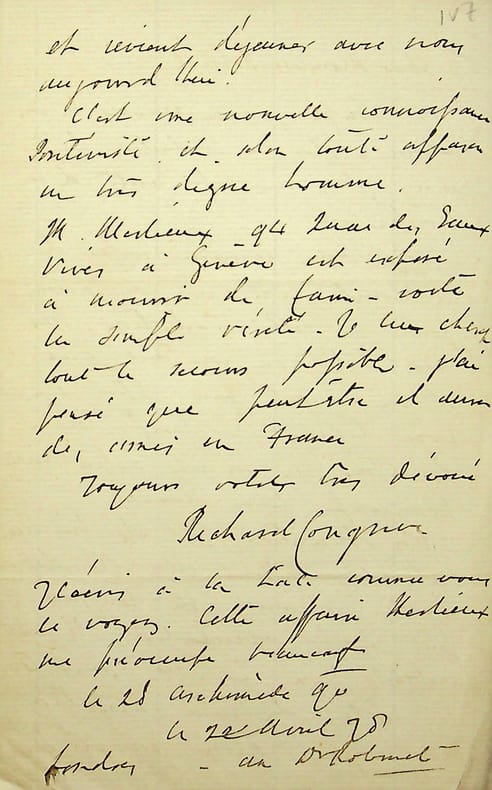 147
et revient déjeuner avec nous
aujourd'hui.
C'est une nouvelle connaissance
Positiviste et selon toute apparence
un très digne homme.
M. Meslieux 94 Quai des Eaux
Vives à Genève est exposé
à mourir de faim - voilà
la simple vérité - Je lui cherche
tout le secours possible - j'ai
pensé que peut être il aurait
des amis en France
Toujours votre très dévoué
Richard Congreve
J'écris à la hâte comme vous
le voyez. Cette affaire Meslieux
me préoccupe beaucoup
le 28 Archimède 90
le 22 Avril 78
Londres - au Dr Robinet